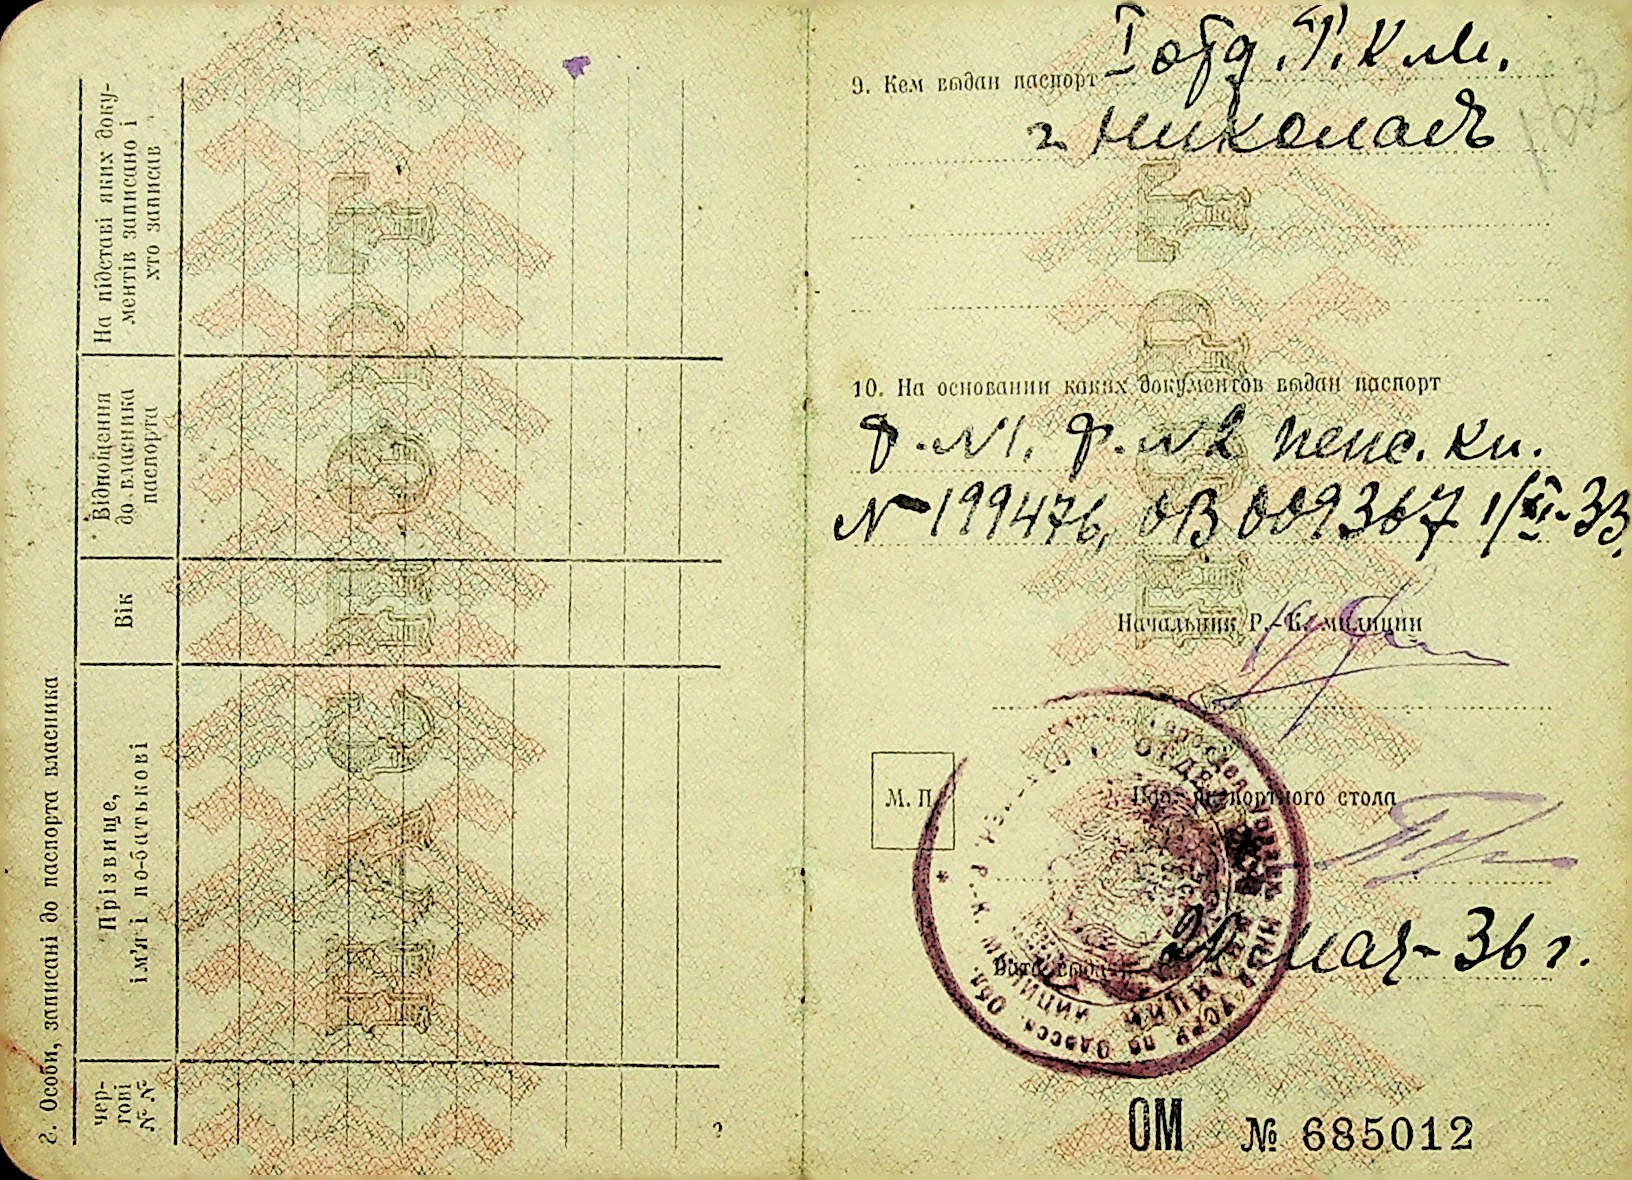 2. Особи, записані до паспорта власника
чер-
гові
№ №
Прізвище,
ім'я і по-батькові
Вік
Відношення
до власника
паспорта
На підставі яких доку-
ментів записано і
хто записав
2
9. Кем выдан паспорт I отд. Р.К.М.
г. Николаев
10. На основании каких документов выдан паспорт
Ф.-№1. Ф.-№2 пенс. кн.
№ 199476, ОВ 009367 1/XI-33.
Начальник Р.-К. милиции
М. П.
Нач. паспортного стола
Дата выдачи мая-36 г.
ПАСПОРТ
ОМ № 685012